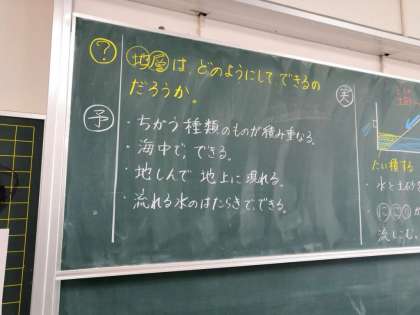 ? 地層は、どのようにして できるの
だろうか。
予 ・ちがう種類のものが積み重なる。
・海中で、できる。
・地しんで 地上に現れる。
・流れる水のはたらきで、できる。
実
たい積する
・水と土
・にごり
流しこむ。